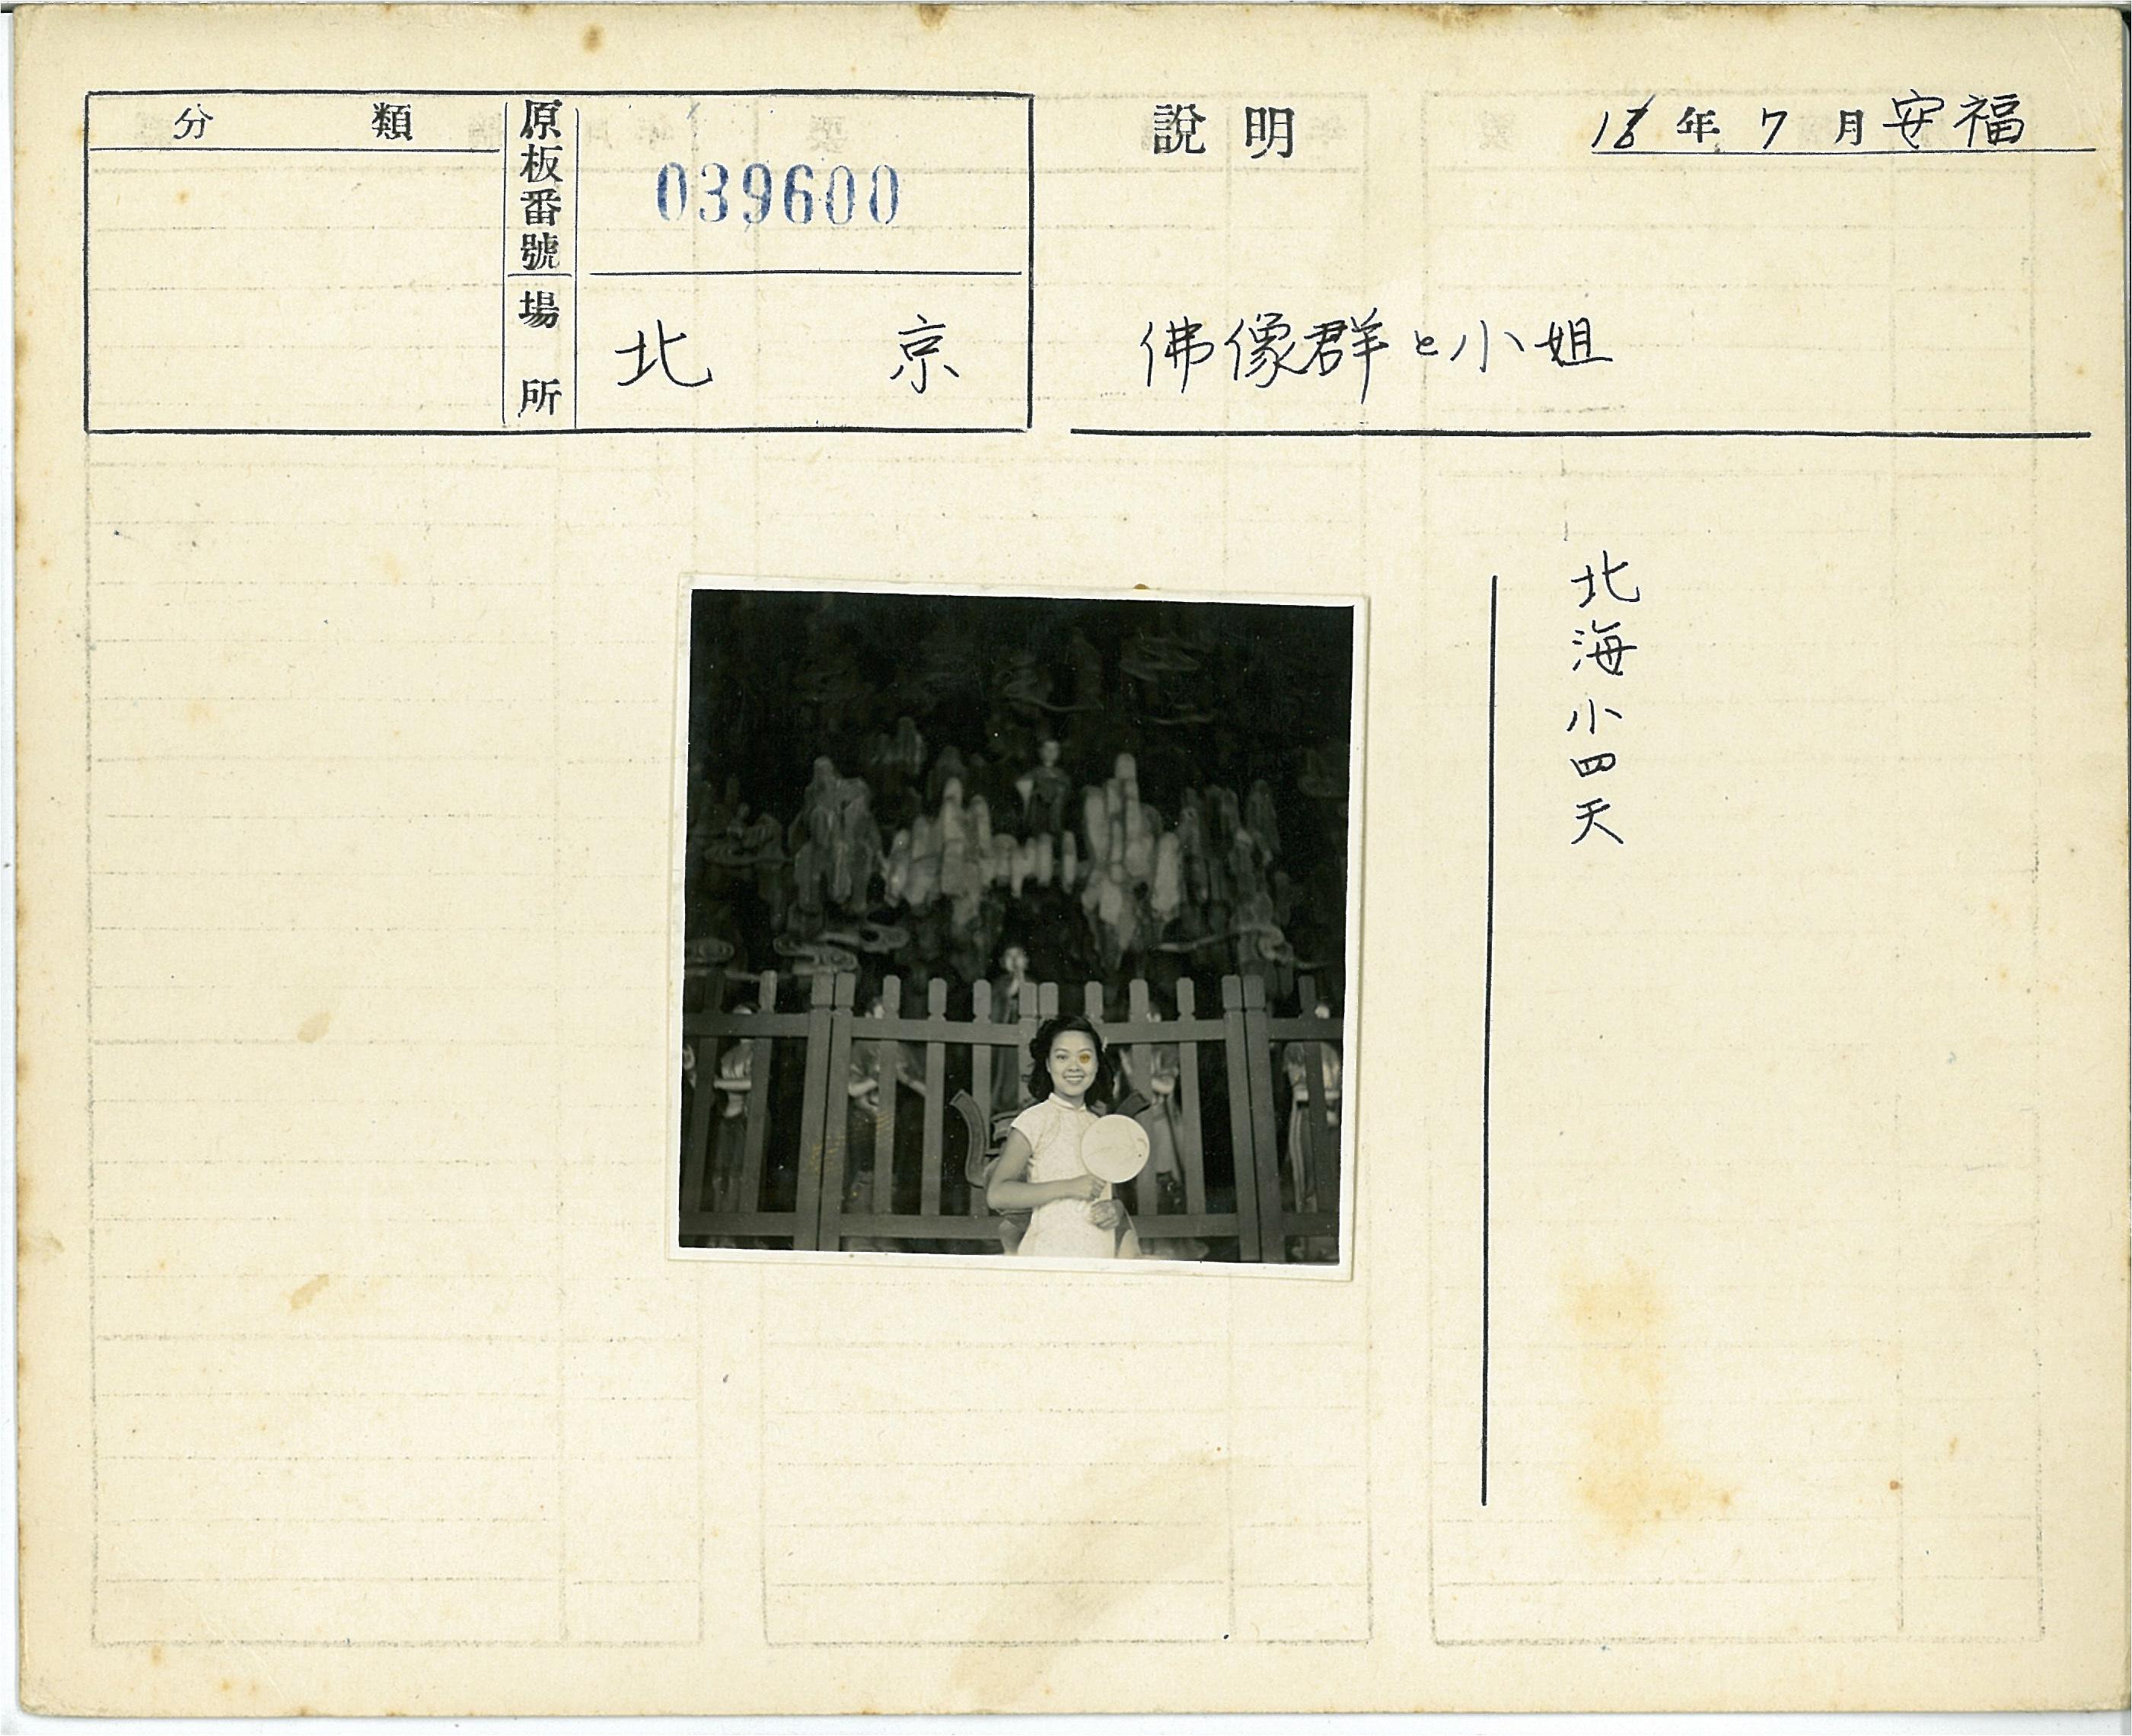 分類
原板番號
039600
場所
北京
説明
年7月安福
佛像群と小姐
北海小四天